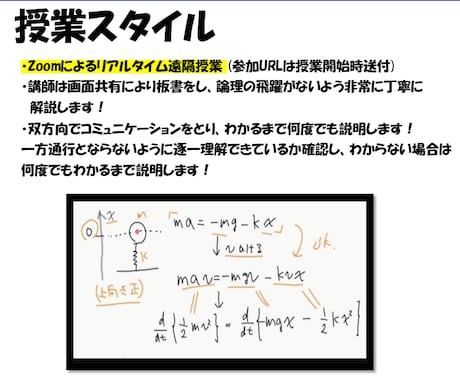 授業スタイル
・Zoomによるリアルタイム遠隔授業 (参加URLは授業開始時送付)
・講師は画面共有により板書をし、論理の飛躍がないよう非常に丁寧に
解説します！
・双方向でコミュニケーションをとり、わかるまで何度でも説明します！
一方通行とならないように逐一理解できているか確認し、わからない場合は
何度でもわかるまで説明します！
x
m
0
k
(上向き正)
「ma = -mg - kx」
↓ v かける
ok.
mav = -mgv - kvx
d/dt {1/2 mv²} = d/dt {-mgx - 1/2 kx²}